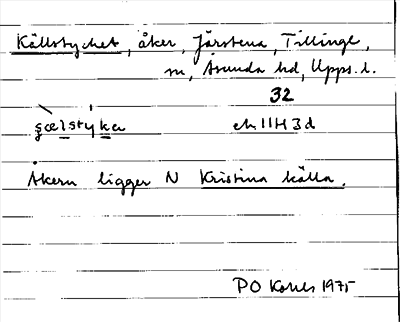 Källstycket, åker, Järstena, Tillinge,
sn, Åsunda hd, Upps. l.
32
çælstyka ek 11H3d
Åkern ligger N Kristina källa.
PO 1975